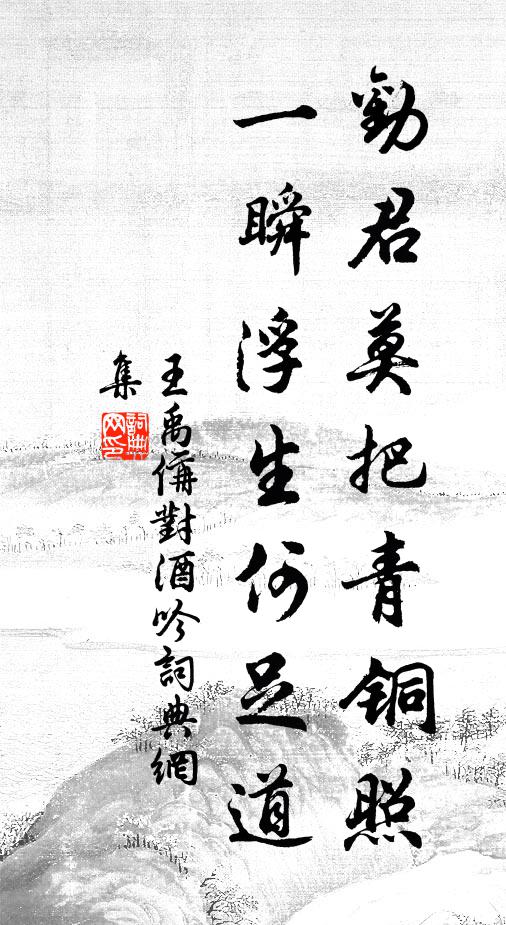 勸君莫把青铜照
一瞬浮生何足道
王禹偁對酒吟詞典網
集
詞典網印